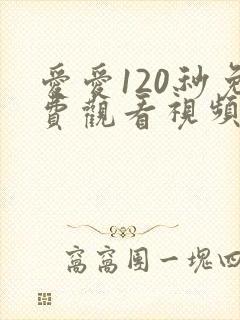 愛愛120秒免
費觀看視頻
窩窩團一塊四